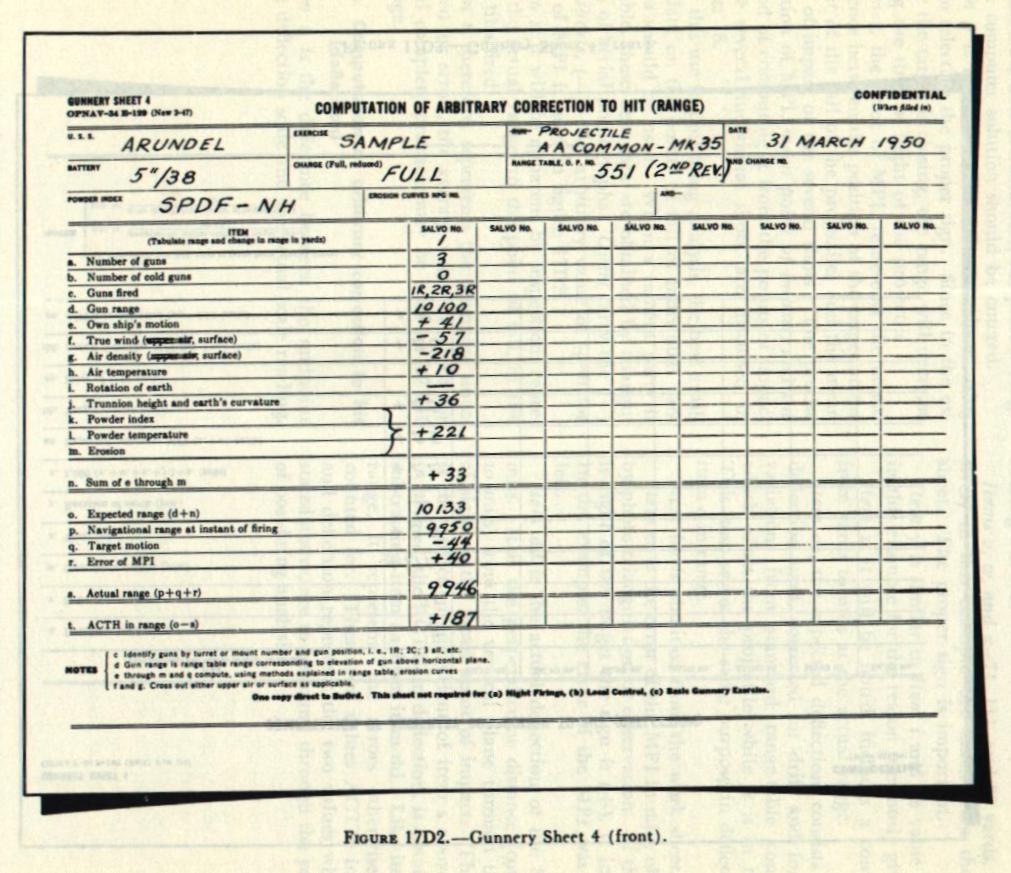 GUNNERY SHEET 4
OPNAV-34 B-129 (New 3-47)
COMPUTATION OF ARBITRARY CORRECTION TO HIT (RANGE)
CONFIDENTIAL
(When filled in)
U. S. S. ARUNDEL
EXERCISE SAMPLE
PROJECTILE
AA COMMON - MK 35
DATE 31 MARCH 1950
BATTERY 5"/38
CHARGE (Full, reduced) FULL
RANGE TABLE, O. P. NO. 551 (2ND REV.) AND CHANGE NO.
POWDER INDEX SPDF-NH
EROSION CURVES NPG NO.
AND—
ITEM
(Tabulate range and change in range in yards)
SALVO NO. SALVO NO. SALVO NO. SALVO NO. SALVO NO. SALVO NO. SALVO NO. SALVO NO.
1
a. Number of guns 3
b. Number of cold guns 0
c. Guns fired 1R,2R,3R
d. Gun range 10100
e. Own ship's motion + 41
f. True wind (upper air, surface) - 57
g. Air density (upper air, surface) -218
h. Air temperature +10
i. Rotation of earth —
j. Trunnion height and earth's curvature + 36
k. Powder index
l. Powder temperature +221
m. Erosion
n. Sum of e through m +33
o. Expected range (d+n) 10133
p. Navigational range at instant of firing 9950
q. Target motion -44
r. Error of MPI +40
s. Actual range (p+q+r) 9946
t. ACTH in range (o—s) +187
NOTES
c Identify guns by turret or mount number and gun position, i. e., 1R; 2C; 3 all, etc.
d Gun range is range table range corresponding to elevation of gun above horizontal plane.
e through m and q compute, using methods explained in range table, erosion curves
f and g. Cross out either upper air or surface as applicable.
One copy direct to BuOrd. This sheet not required for (a) Night Firings, (b) Local Control, (c) Basic Gunnery Exercise.
FIGURE 17D2.—Gunnery Sheet 4 (front).